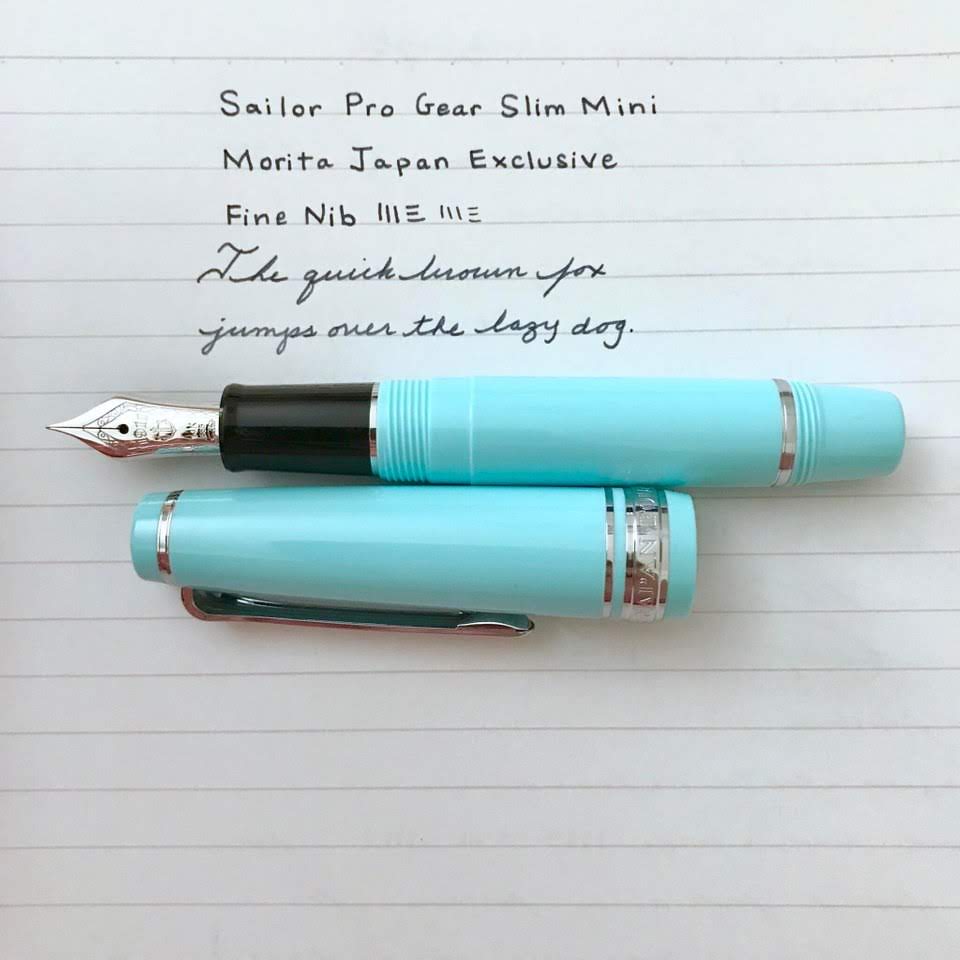 Sailor Pro Gear Slim Mini
Morita Japan Exclusive
Fine Nib
The quick brown fox
jumps over the lazy dog.